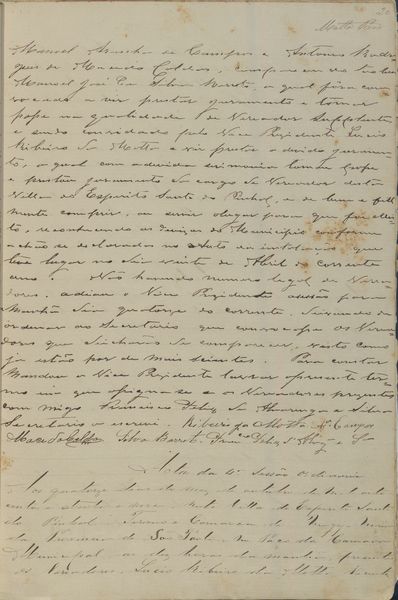 20
Motta Pres
Manoel Aranha de Campos e Antonio Rodri-
gues de Macedo Caldas, compareceu
Manoel José da Silva Barreto, o qual fôra con-
vocado a vir prestar juramento e tomar
posse na qualidade de Vereador Supplente
e sendo convidado pelo Vice Prezidente Lucio
Ribeiro da Motta a vir prestar o devido juramen-
to, o qual com a devida tomou posse
e prestou juramento do cargo de Vereador desta
Villa do Espirito Santo do Pinhal, e de bem e fiel-
mente cumprir, ou servir o lugar para que foi elei-
to, reconhecendo as divizas do Municipio conforme
achão se declaradas no Auto da installação, que
teve lugar no dia vinte de Abril do corrente
anno. Não havendo numero legal de Verea-
dores, adiou o Vice Prezidente a sessão para
Manhã dia quatorze do corrente.
ordenar ao Secretario que convocasse os Verea-
dores que deichárão de comparecer, visto como
já estão por de mais scientes. Para constar
Mandou o Vice Prezidente lavrar o presente ter-
mo em que assigna-se e os Vereadores prezentes
com migo Francisco de e Silva
Secretario o escrevi. Ribeiro da Motta. A. Campos
Macedo Caldas Silva Barreto.
Acta da 4ª Sessão Ordinaria
Aos quatorze dias do mez de outubro de mil oito
centos e nesta Villa do Espirito Santo
do Pinhal Comarca de Mogy Mirim
da Provincia de São Paulo no Paço da Camara
Municipal as dez horas da manhã prezente
os Vereadores Lucio Ribeiro da Motta Vicente